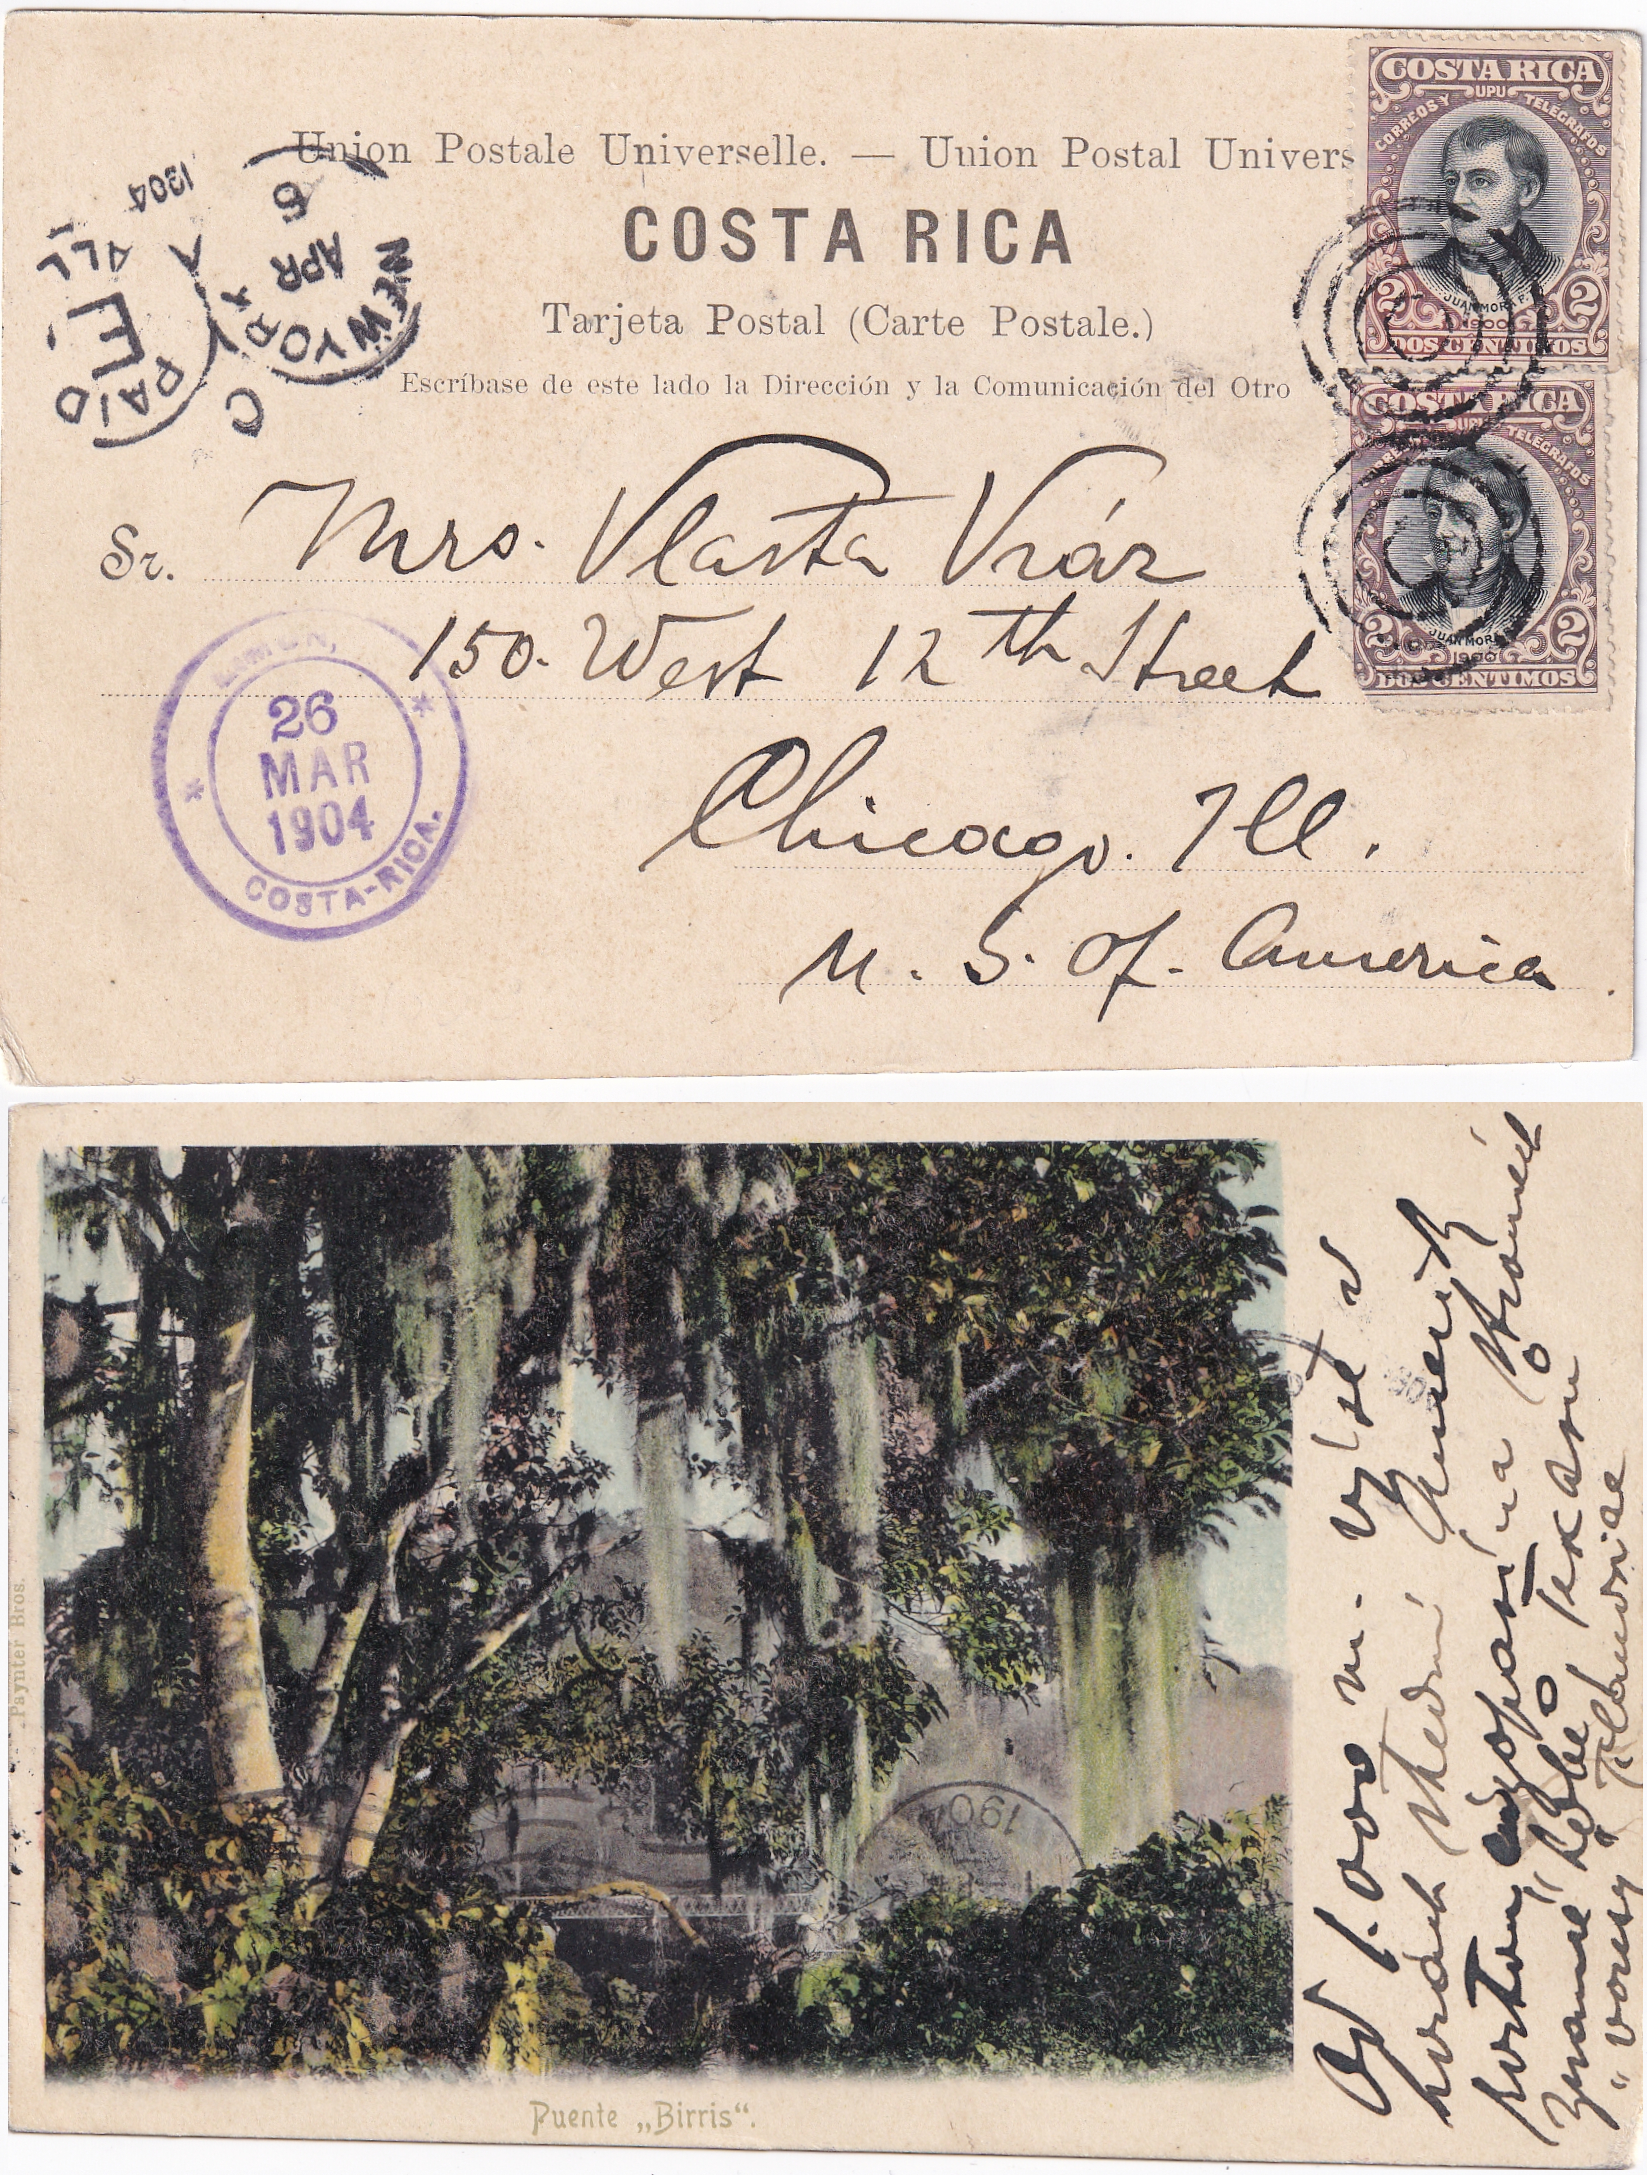 Union Postale Universelle. — Union Postal Univers
COSTA RICA
Tarjeta Postal (Carte Postale.)
Escríbase de este lado la Dirección y la Comunicación del Otro
COSTA RICA
CORREOS Y UPU TELEGRAFOS
JUAN MORA F.
1900
2 2
DOS CENTIMOS
COSTA RICA
UPU TELEGRAFOS
JUAN MORA
1900
2 2
DOS CENTIMOS
NEW YORK
APR
1904
PAID
ALL
Sr. Mrs. Vlasta Vráz
150. West 12th Street
Chicago. Ill.
U. S. of. America
LIMON,
26
MAR
1904
COSTA-RICA.
Paynter Bros.
Puente „Birris“.
190
Od 1.000 m. výše v
horách střední Ameriky
porostou na stromech
známé
"vousy"